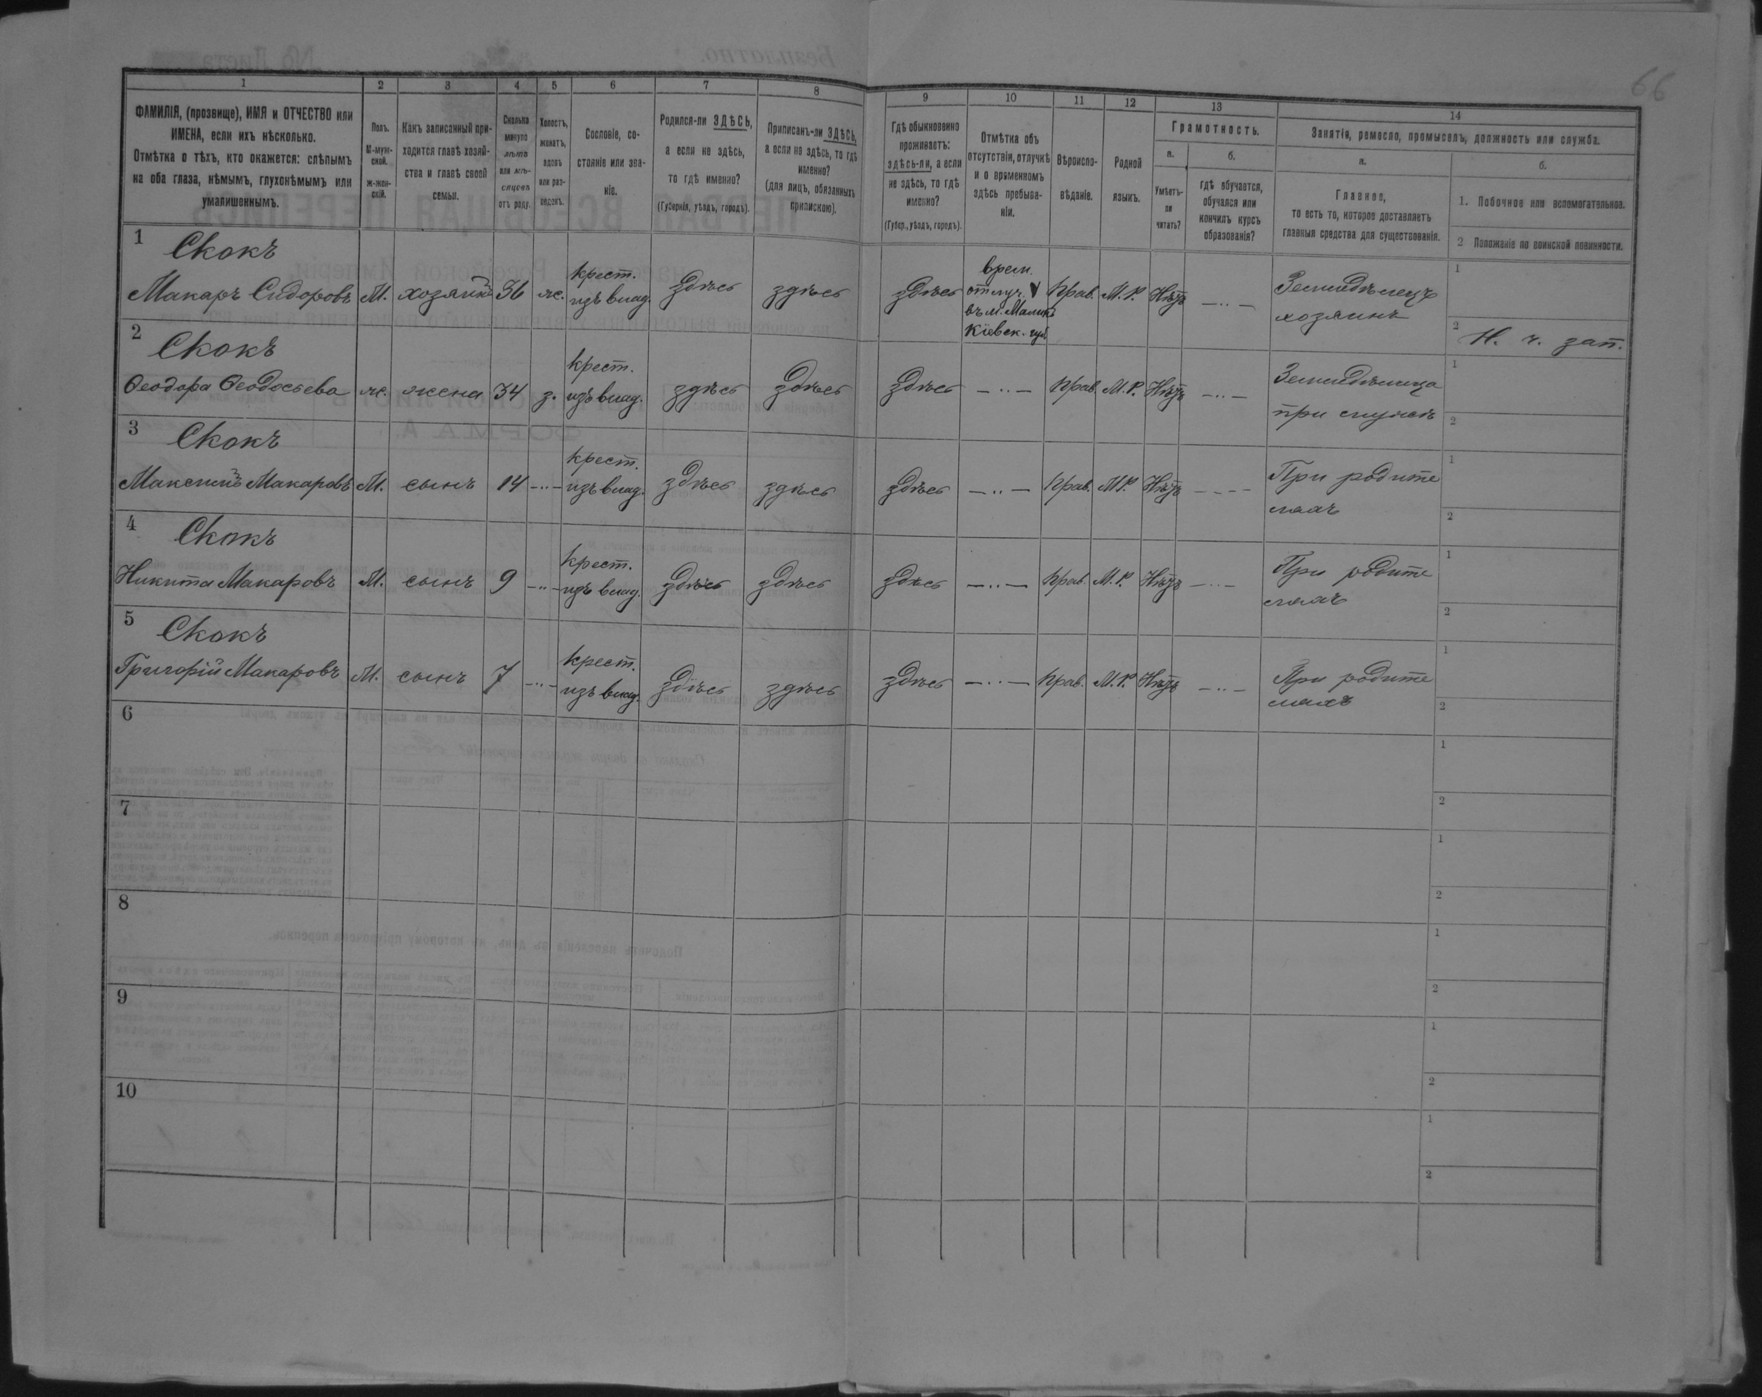 66
1 2 3 4 5 6 7 8 9 10 11 12 13 14
ФАМИЛІЯ, (прозвище), ИМЯ и ОТЧЕСТВО или
ИМЕНА, если ихъ нѣсколько.
Отмѣтка о тѣхъ, кто окажется: слѣпымъ
на оба глаза, нѣмымъ, глухонѣмымъ или
умалишеннымъ.
Полъ.
М-муж-
ской.
ж-жен-
скій.
Какъ записанный при-
ходится главѣ хозяй-
ства и главѣ своей
семьи.
Сколько
минуло
лѣтъ
или мѣ-
сяцевъ
отъ роду.
Холостъ,
женатъ,
вдовъ
или раз-
веденъ.
Сословіе, со-
стояніе или зва-
ніе.
Родился-ли ЗДѢСЬ,
а если не здѣсь,
то гдѣ именно?
(Губернія, уѣздъ, городъ).
Приписанъ-ли ЗДѢСЬ,
а если не здѣсь, то гдѣ
именно?
(для лицъ, обязанныхъ
припискою).
Гдѣ обыкновенно
проживаетъ:
здѣсь-ли, а если
не здѣсь, то гдѣ
именно?
(Губер., уѣздъ, городъ).
Отмѣтка объ
отсутствіи, отлучкѣ
и о временномъ
здѣсь пребыва-
ніи.
Вѣроиспо-
вѣданіе.
Родной
языкъ.
Грамотность.
а.
Умѣетъ-
ли
читать?
б.
гдѣ обучается,
обучался или
кончилъ курсъ
образованія?
Занятія, ремесло, промыселъ, должность или служба.
а.
Главное,
то есть то, которое доставляетъ
главныя средства для существованія.
б.
1. Побочное или вспомогательное.
2 Положеніе по воинской повинности.
1 Скокъ
Макаръ Сидоровъ М. хозяинъ 36 ж. крест. изъ влад. здѣсь здѣсь здѣсь врем. отлуч. V въ м. Малинъ Кіевск. губ. Прав. М. Р. Нѣтъ —..— Земледѣлецъ хозяинъ
1
2 Н. ч. зап.
2 Скокъ
Ѳеодора Ѳеодосьева ж. жена 34 з. крест. изъ влад. здѣсь здѣсь здѣсь —..— Прав. М. Р. Нѣтъ —..— Земледѣлица при мужѣ
1
2
3 Скокъ
Максимъ Макаровъ М. сынъ 14 —..— крест. изъ влад. здѣсь здѣсь здѣсь —..— Прав. М. Р. Нѣтъ —..— При родите
ляхъ
1
2
4 Скокъ
Никита Макаровъ М. сынъ 9 —..— крест. изъ влад. здѣсь здѣсь здѣсь —..— Прав. М. Р. Нѣтъ —..— При родите
ляхъ
1
2
5 Скокъ
Григорій Макаровъ М. сынъ 7 —..— крест. изъ влад. здѣсь здѣсь здѣсь —..— Прав. М. Р. Нѣтъ —..— При родите
ляхъ
1
2
6
1
2
7
1
2
8
1
2
9
1
2
10
1
2